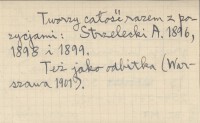 Tworzy całość razem z po-
zycjami: Strzelecki A. 1896,
1898 i 1899.
Też jako odbitka (War-
szawa 1901).